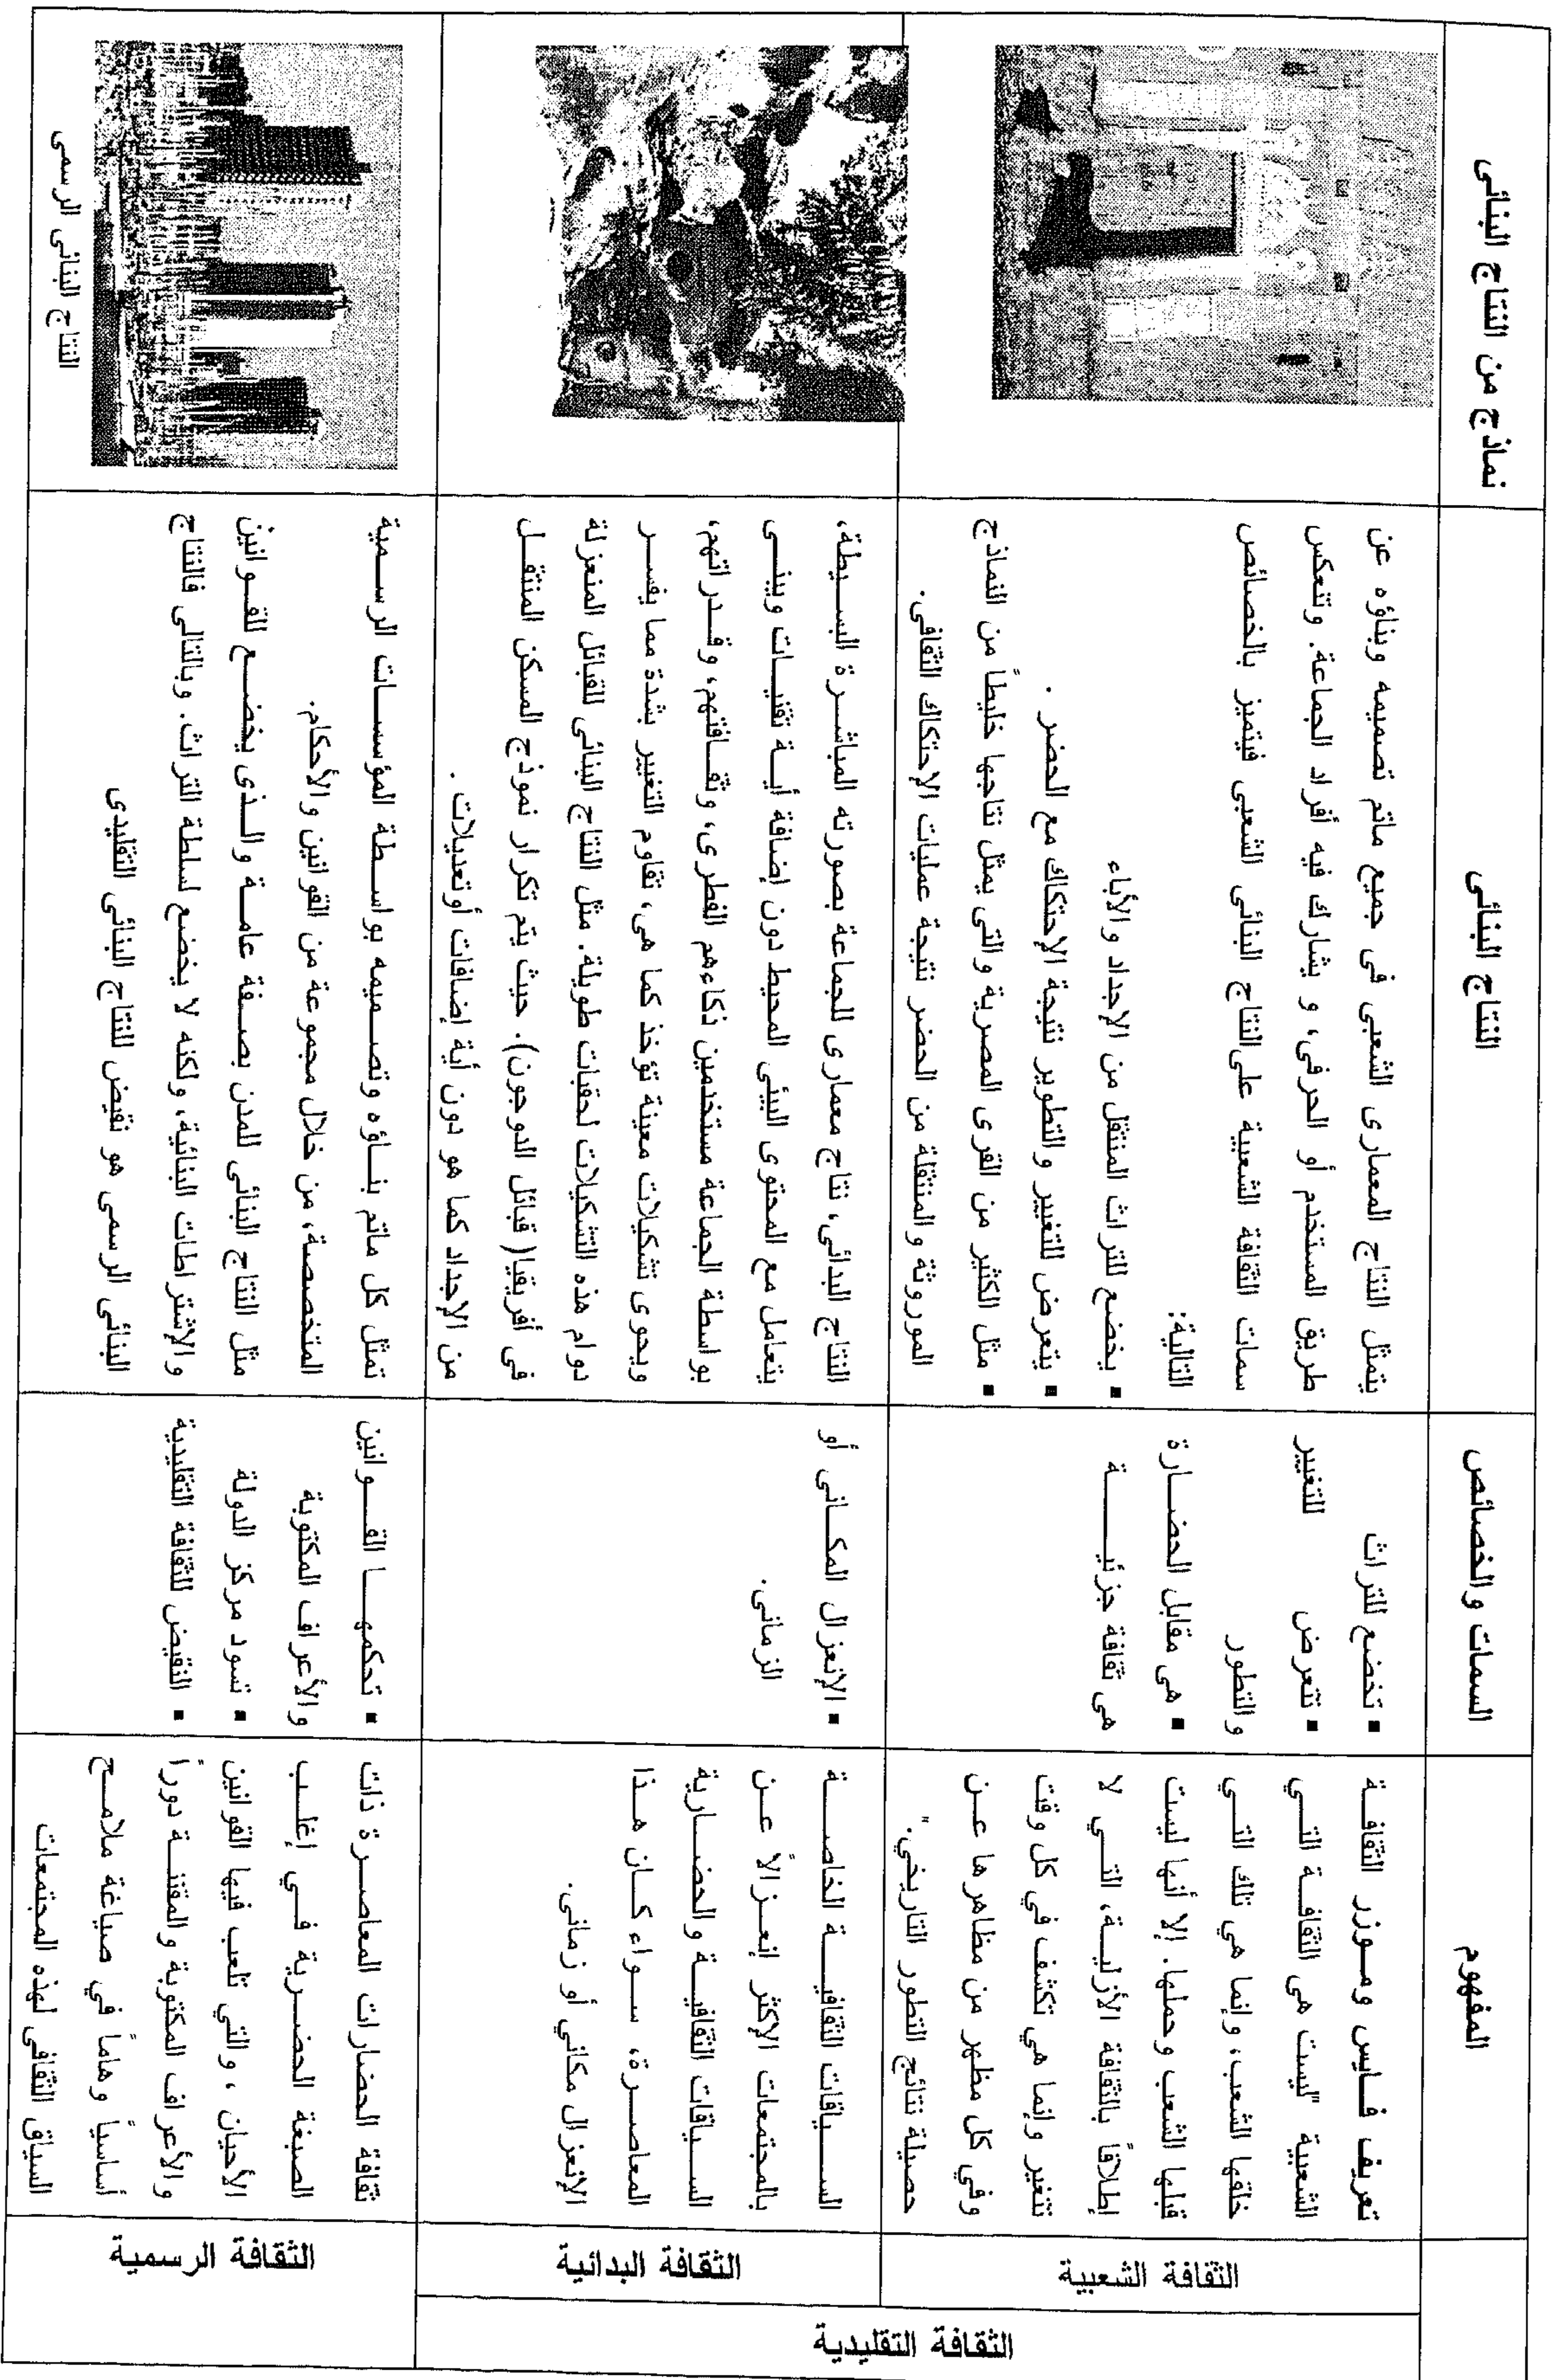 المفهوم
السمات والخصائص
النتاج البنائى
نماذج من النتاج البنائى
الثقافة التقليدية
الثقافة الشعبية
تعريف فايس وموزر الثقافة
الشعبية "ليست هى الثقافة التي
خلقها الشعب، وإنما هي تلك التي
قبلها الشعب وحملها. إلا أنها ليست
إطلاقاً بالثقافة الأزلية، التي لا
تتغير وإنما هي تكشف في كل وقت
وفي كل مظهر من مظاهرها عن
حصيلة نتائج التطور التاريخي."
▪ تخضع للتراث
▪ تتعرض للتغيير
والتطور
▪ هى مقابل الحضارة
هى ثقافة جزئية
يتمثل النتاج المعمارى الشعبى فى جميع ماتم تصميمه وبناؤه عن
طريق المستخدم أو الحرفى، و يشارك فيه أفراد الجماعة. وتنعكس
سمات الثقافة الشعبية على النتاج البنائى الشعبى فيتميز بالخصائص
التالية:
▪ يخضع للتراث المنتقل من الإجداد والأباء
▪ يتعرض للتغيير والتطوير نتيجة الإحتكاك مع الحضر .
▪ مثل الكثير من القرى المصرية والتى يمثل نتاجها خليطاً من النماذج
الموروثة والمنتقلة من الحضر نتيجة عمليات الإحتكاك الثقافى.
الثقافة البدائية
السياقات الثقافية الخاصة
بالمجتمعات الإكثر إنعزالاً عن
السياقات الثقافية والحضارية
المعاصرة، سواء كان هذا
الإنعزال مكاني أو زمانى.
▪ الإنعزال المكانى أو
الزمانى.
النتاج البدائى، نتاج معمارى للجماعة بصورته المباشرة البسيطة،
يتعامل مع المحتوى البيئى المحيط دون إضافة أية تقنيات ويبنى
بواسطة الجماعة مستخدمين ذكاءهم الفطرى، وثقافتهم، وقدراتهم،
ويحوى تشكيلات معينة تؤخذ كما هى، تقاوم التغيير بشدة مما يفسر
دوام هذه التشكيلات لحقبات طويلة. مثل النتاج البنائى للقبائل المنعزلة
فى أفريقيا( قبائل الدوجون). حيث يتم تكرار نموذج المسكن المنتقل
من الإجداد كما هو دون أية إضافات أوتعديلات .
الثقافة الرسمية
ثقافة الحضارات المعاصرة ذات
الصبغة الحضرية في إغلب
الأحيان ، والتي تلعب فيها القوانين
والأعراف المكتوبة والمقننة دوراً
أساسياً وهاماً في صياغة ملامح
السياق الثقافى لهذه المجتمعات
▪ تحكمها القوانين
والأعراف المكتوبة
▪ تسود مركز الدولة
▪ النقيض للثقافة التقليدية
تمثل كل ماتم بناؤه وتصميمه بواسطة المؤسسات الرسمية
المتخصصة، من خلال مجموعة من القوانين والأحكام.
مثل النتاج البنائى للمدن بصفة عامة والذى يخضع للقوانين
والإشتراطات البنائية، ولكنه لا يخضع لسلطة التراث. وبالتالى فالنتاج
البنائى الرسمى هو نقيض للنتاج البنائى التقليدى
النتاج البنائى الرسمى